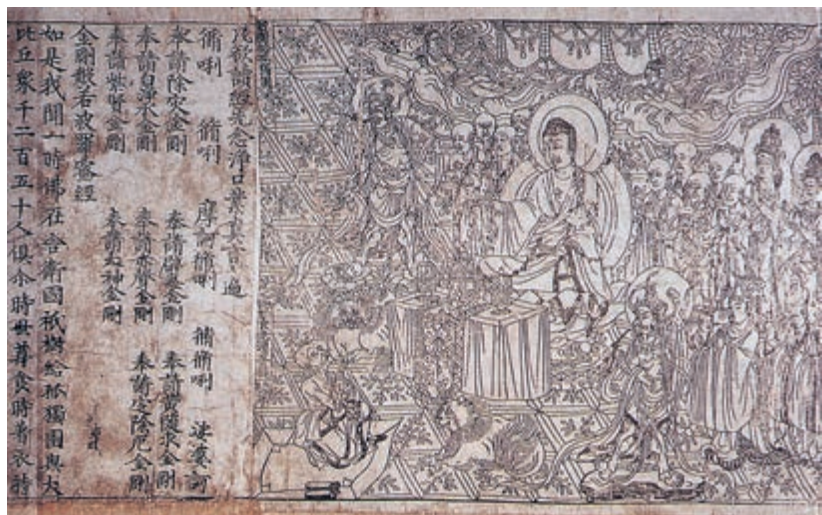 凡欲讀經先念淨口業真言遍
脩唎 脩唎 摩訶脩唎 脩脩唎 娑婆訶
奉請除灾金剛 奉請辟毒金剛 奉請黃隨求金剛
奉請白淨水金剛 奉請赤聲金剛 奉請定除厄金剛
奉請紫賢金剛 奉請大神金剛
金剛般若波羅蜜經
如是我聞一時佛在舍衛國祇樹給孤獨園與大
比丘衆千二百五十人俱尒時世尊食時著衣持